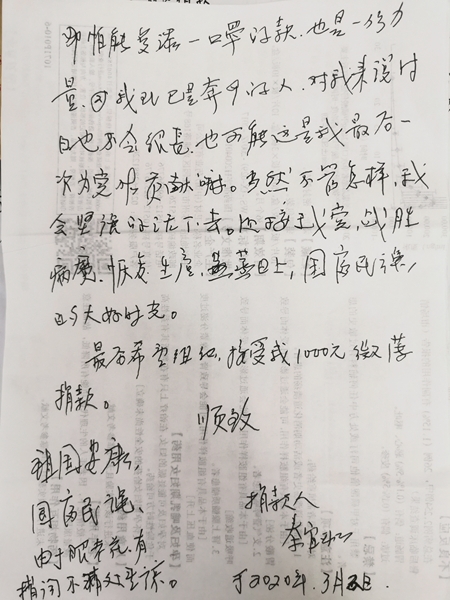 即怕能多添一口罩的款.也是一份力
量.因我现已是奔9的人.对我来说时
日也不会很长.也可能这是我最后一
次为党作贡献啊。当然不管怎样,我
会坚强的活下去。迎接 战胜
病魔.恢复生产,蒸蒸日上,国富民强,
的大好时光。
最后希望组织,接受我1000元微薄
捐款。
顺致
祖国安康,
国富民强、
捐款人
由于眼老花.有
李宜
错词不精处望谅。
于2020年.3月 日.